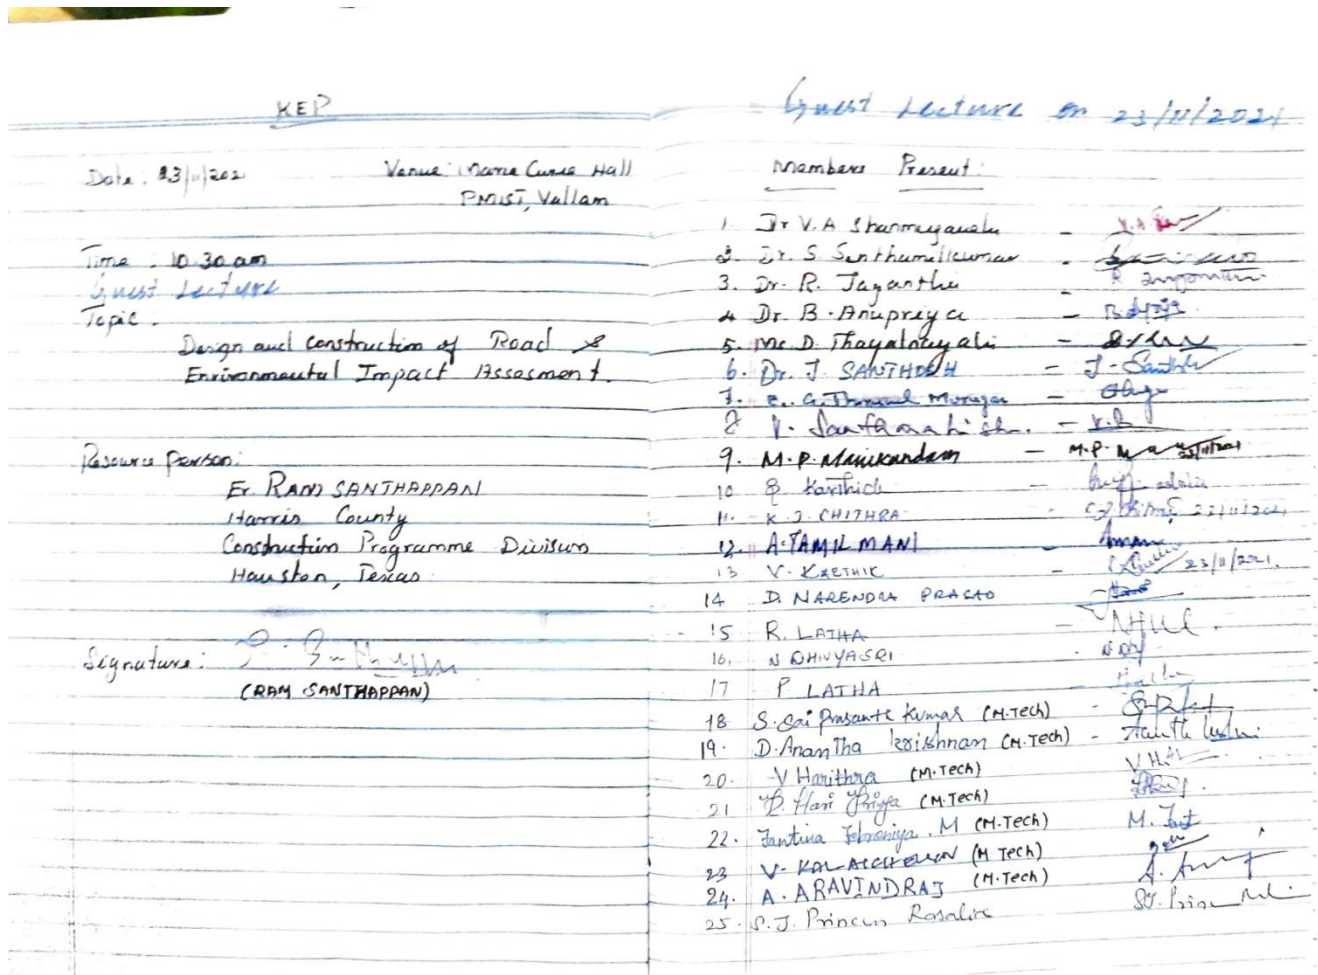 KEP
Date: 23/11/202
Venue: Marie Curie Hall
PMIST, Vallam
Time : 10.30 am
Guest Lecture
Topic :
Design and Construction of Road &
Environmental Impact Assesment.
Resource Person:
Er. RAM SANTHAPPAN
Harris County
Construction Programme Division
Houston, Texas
Signature:
(RAM SANTHAPPAN)
Guest Lecture on 23/11/2021
Members Present:
1. Dr V.A Shanmugavelu
2. Dr. S. Senthamilkumar
3. Dr. R. Jayanthi
4 Dr. B. Anupriya
5. D. Thayalnayaki
6. Dr. J. SANTHOSH - J. Santh
7. Murugan
8 V.
9. M.P. Manikandan - M.P. 23/11/2021
10 Karthick
11. K J. CHITHRA 23/11/2021
12. A. TAMIL MANI
13. V. KARTHIK 23/11/2021.
14 D. NARENDRA PRASAD
15 R. LATHA
16. N DHIVYASRI
17 P LATHA
18 S. Sai Prasanth Kumar (M.Tech)
19. D. Anantha krishnan (M.Tech)
20. V Harithra (M.Tech)
21 Hari Priya (M.Tech)
22. Fantina Febroniya . M (M.Tech) - M.
23 V. (M Tech)
24. A. ARAVINDRAJ (M.Tech)
25. S. J. Princes Rosaline